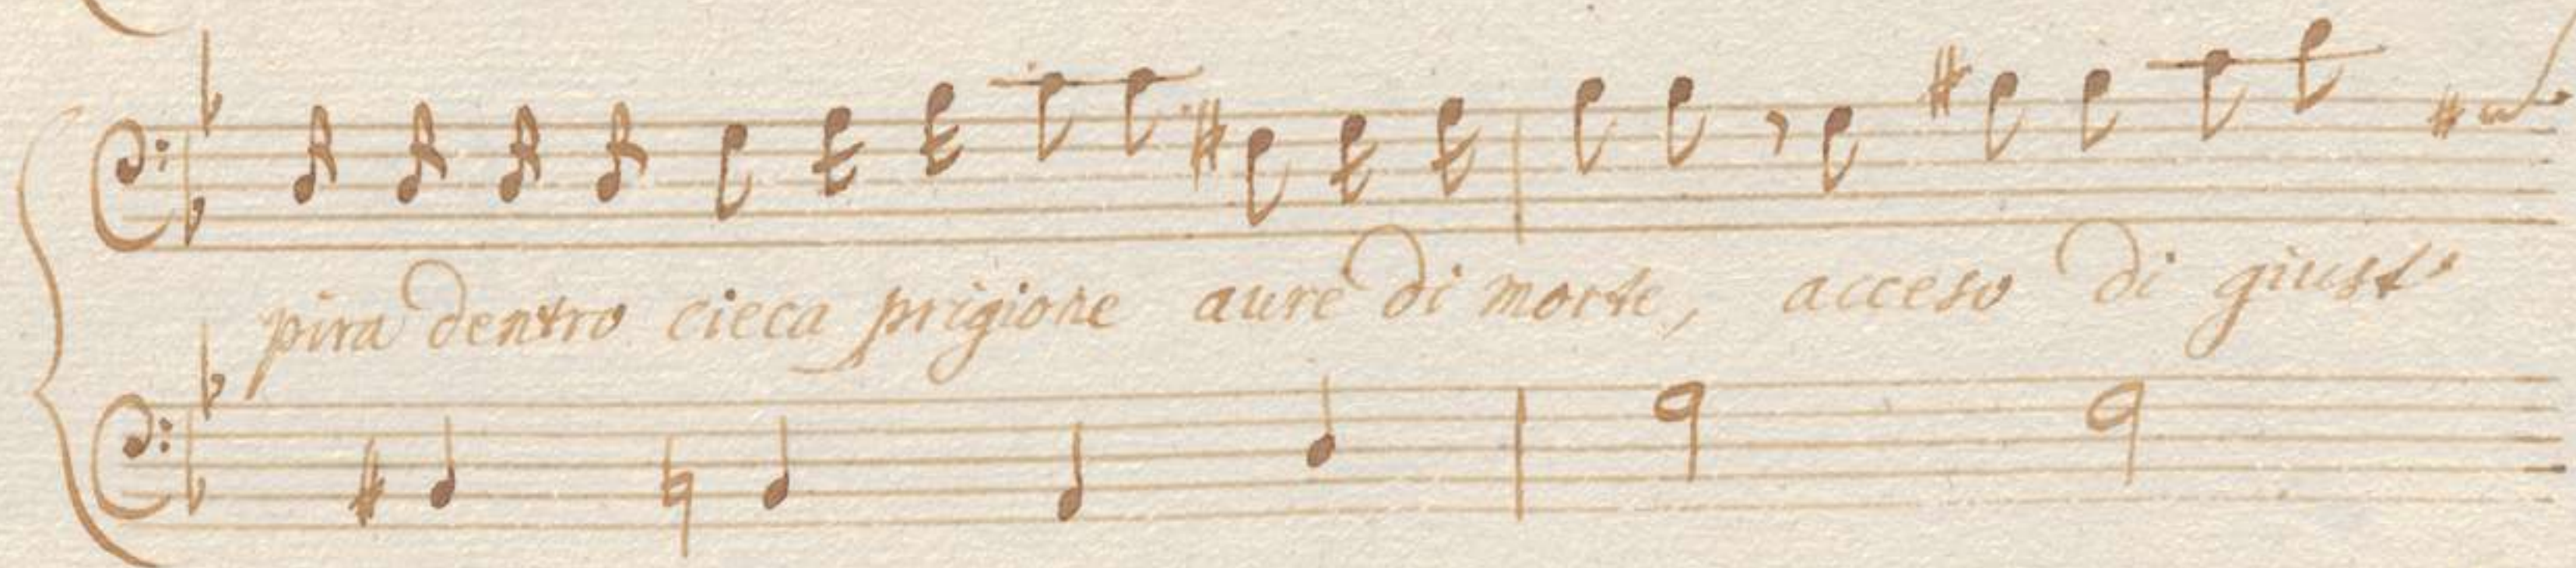 pira dentro cieca prigione aure di morte, acceso di giusto